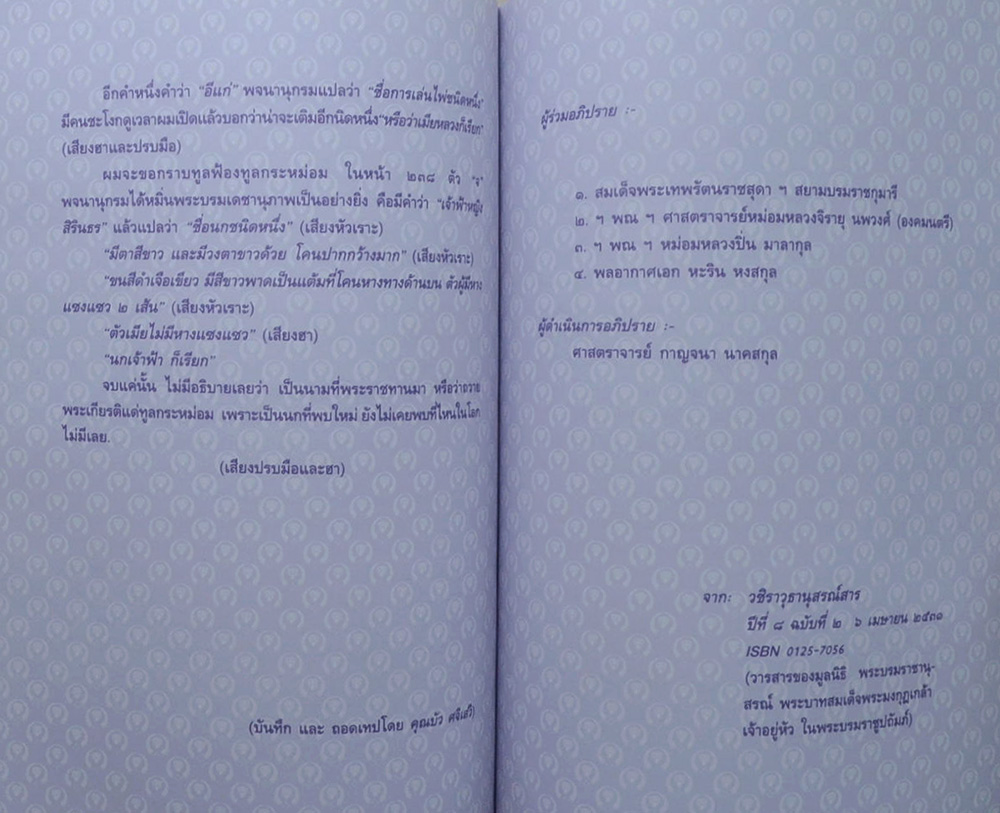 อีกคำหนึ่งคำว่า “อีแก่” พจนานุกรมแปลว่า “ชื่อการเล่นไพ่ชนิดหนึ่ง”
มีคนชะโงกดูเวลาผมเปิดแล้วบอกว่าน่าจะเติมอีกนิดหนึ่ง“หรือว่าเมียหลวงก็เรียก”
(เสียงฮาและปรบมือ)
ผมจะขอกราบทูลฟ้องทูลกระหม่อม ในหน้า ๒๓๘ ตัว “จ”
พจนานุกรมได้หมิ่นพระบรมเดชานุภาพเป็นอย่างยิ่ง คือมีคำว่า “เจ้าฟ้าหญิง
สิรินธร” แล้วแปลว่า “ชื่อนกชนิดหนึ่ง” (เสียงหัวเราะ)
“มีตาสีขาว และมีวงตาขาวด้วย โคนปากกว้างมาก” (เสียงหัวเราะ)
“ขนสีดำเจือเขียว มีสีขาวพาดเป็นแต้มที่โคนหางทางด้านบน ตัวผู้มีหาง
แซงแซว ๒ เส้น” (เสียงหัวเราะ)
“ตัวเมียไม่มีหางแซงแซว” (เสียงฮา)
“นกเจ้าฟ้า ก็เรียก”
จบแค่นั้น ไม่มีอธิบายเลยว่า เป็นนามที่พระราชทานมา หรือว่าถวาย
พระเกียรติแด่ทูลกระหม่อม เพราะเป็นนกที่พบใหม่ ยังไม่เคยพบที่ไหนในโลก
ไม่มีเลย.
(เสียงปรบมือและฮา)
(บันทึก และ ถอดเทปโดย คุณบัว
ผู้ร่วมอภิปราย :-
๑. สมเด็จพระเทพรัตนราชสุดา ฯ สยามบรมราชกุมารี
๒. ฯ พณ ฯ ศาสตราจารย์หม่อมหลวงจิรายุ นพวงศ์ (องคมนตรี)
๓. ฯ พณ ฯ หม่อมหลวงปิ่น มาลากุล
๔. พลอากาศเอก หะริน หงสกุล
ผู้ดำเนินการอภิปราย :-
ศาสตราจารย์ กาญจนา นาคสกุล
จาก: วชิราวุธานุสรณ์สาร
ปีที่ ๘ ฉบับที่ ๒ ๖ เมษายน ๒๕๓๑
ISBN 0125-7056
(วารสารของมูลนิธิ พระบรมราชานุ-
สรณ์ พระบาทสมเด็จพระมงกุฎเกล้า
เจ้าอยู่หัว ในพระบรมราชูปถัมภ์)